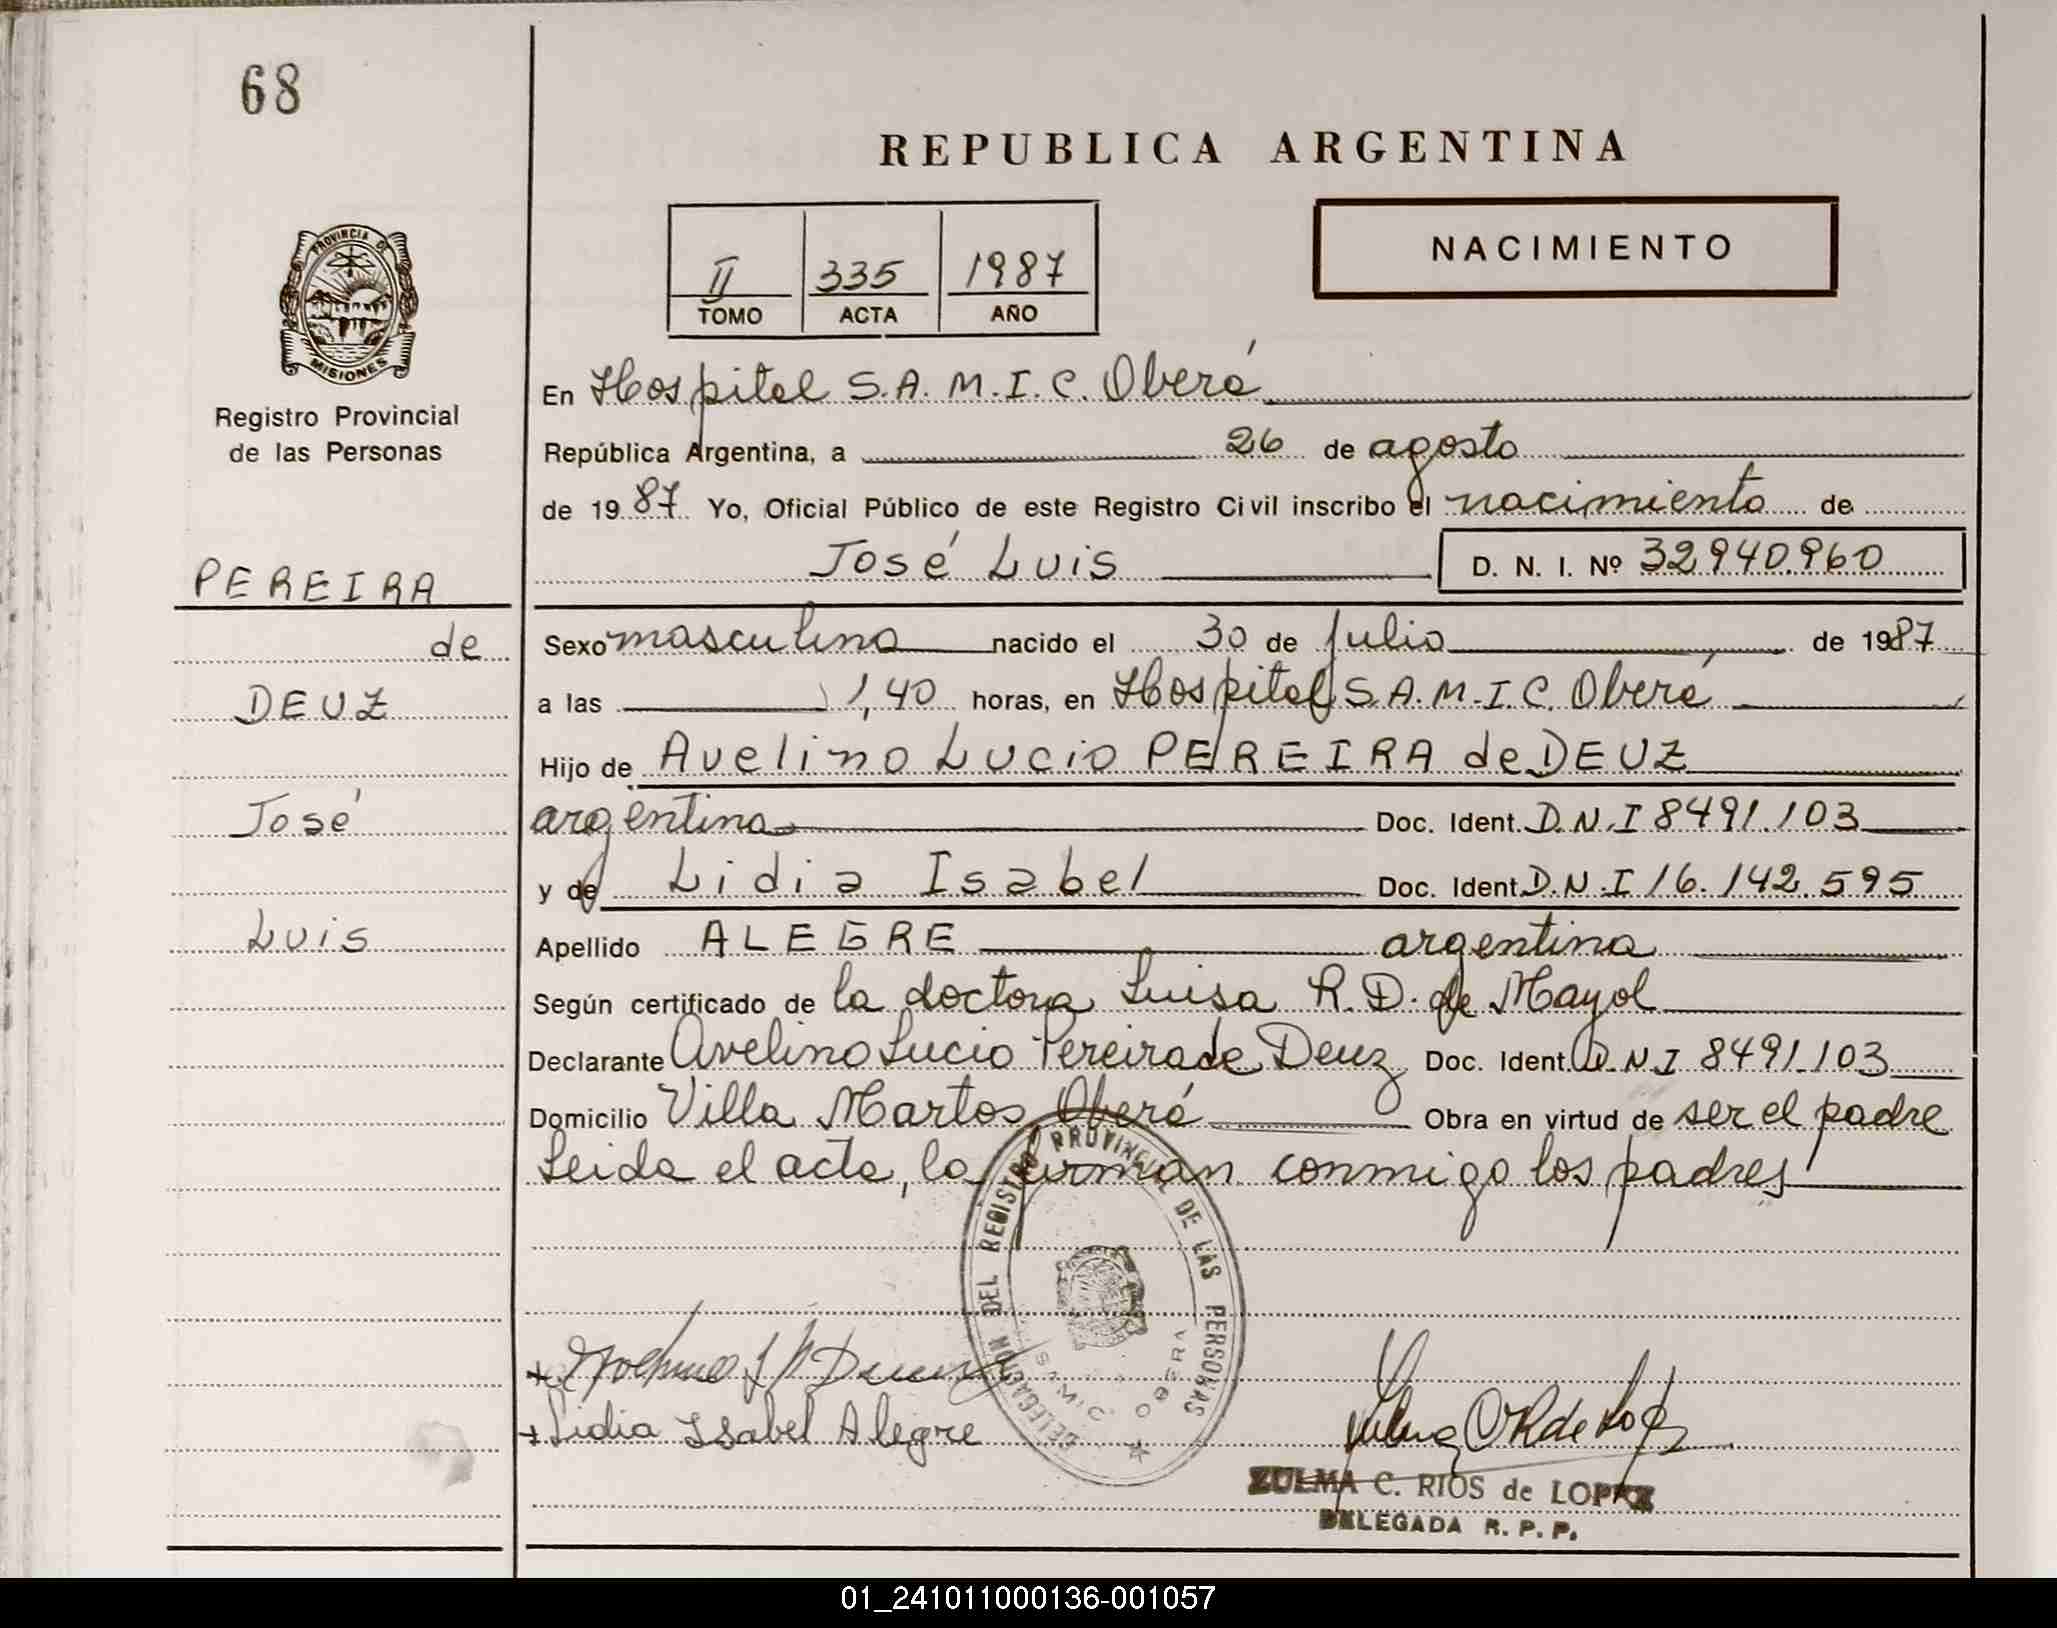 68
REPUBLICA ARGENTINA
II 335 1987
TOMO ACTA AÑO
NACIMIENTO
PROVINCIA DE
MISIONES
Registro Provincial
de las Personas
PEREIRA
de
DEUZ
José
Luis
En Hospital S.A.M.I.C. Oberá
República Argentina, a 26 de agosto
de 1987 Yo, Oficial Público de este Registro Civil inscribo el nacimiento de
José Luis D. N. I. Nº 32940960
Sexo masculino nacido el 30 de julio de 1987
a las 1,40 horas, en Hospital S.A.M.I.C. Oberá
Hijo de Avelino Lucio PEREIRA de DEUZ
argentino Doc. Ident. D.N.I 8491.103
y de Lidia Isabel Doc. Ident D.N.I 16.142.595
Apellido ALEGRE argentina
Según certificado de la doctora Luisa R.D. de Mayol
Declarante Avelino Lucio Pereira de Deuz Doc. Ident. D.N.I 8491.103
Domicilio Villa Martos Oberá Obra en virtud de ser el padre
Leida el acta, la firman conmigo los padres
DELEGACION DEL REGISTRO PROVINCIAL DE LAS PERSONAS
SAMIC OBERA
+ Lidia Isabel Alegre
ZULMA C. RIOS de LOPEZ
DELEGADA R. P. P.
01_241011000136-001057